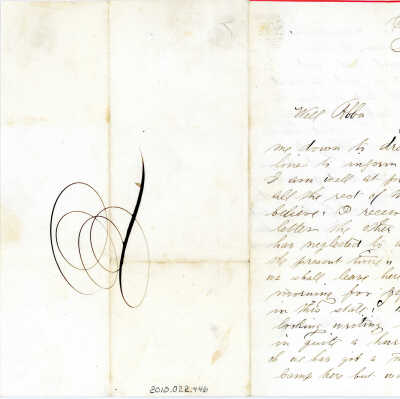 Well Abba
me down to dro
lines to inform
I am well at pr
all the rest of th
believe. I receiv
letter the other
has neglected to
the present time.
we shall leave here
morning for
in this state.
looking writing
in quite a hur
as we has got a
camp here but
2010.022.446